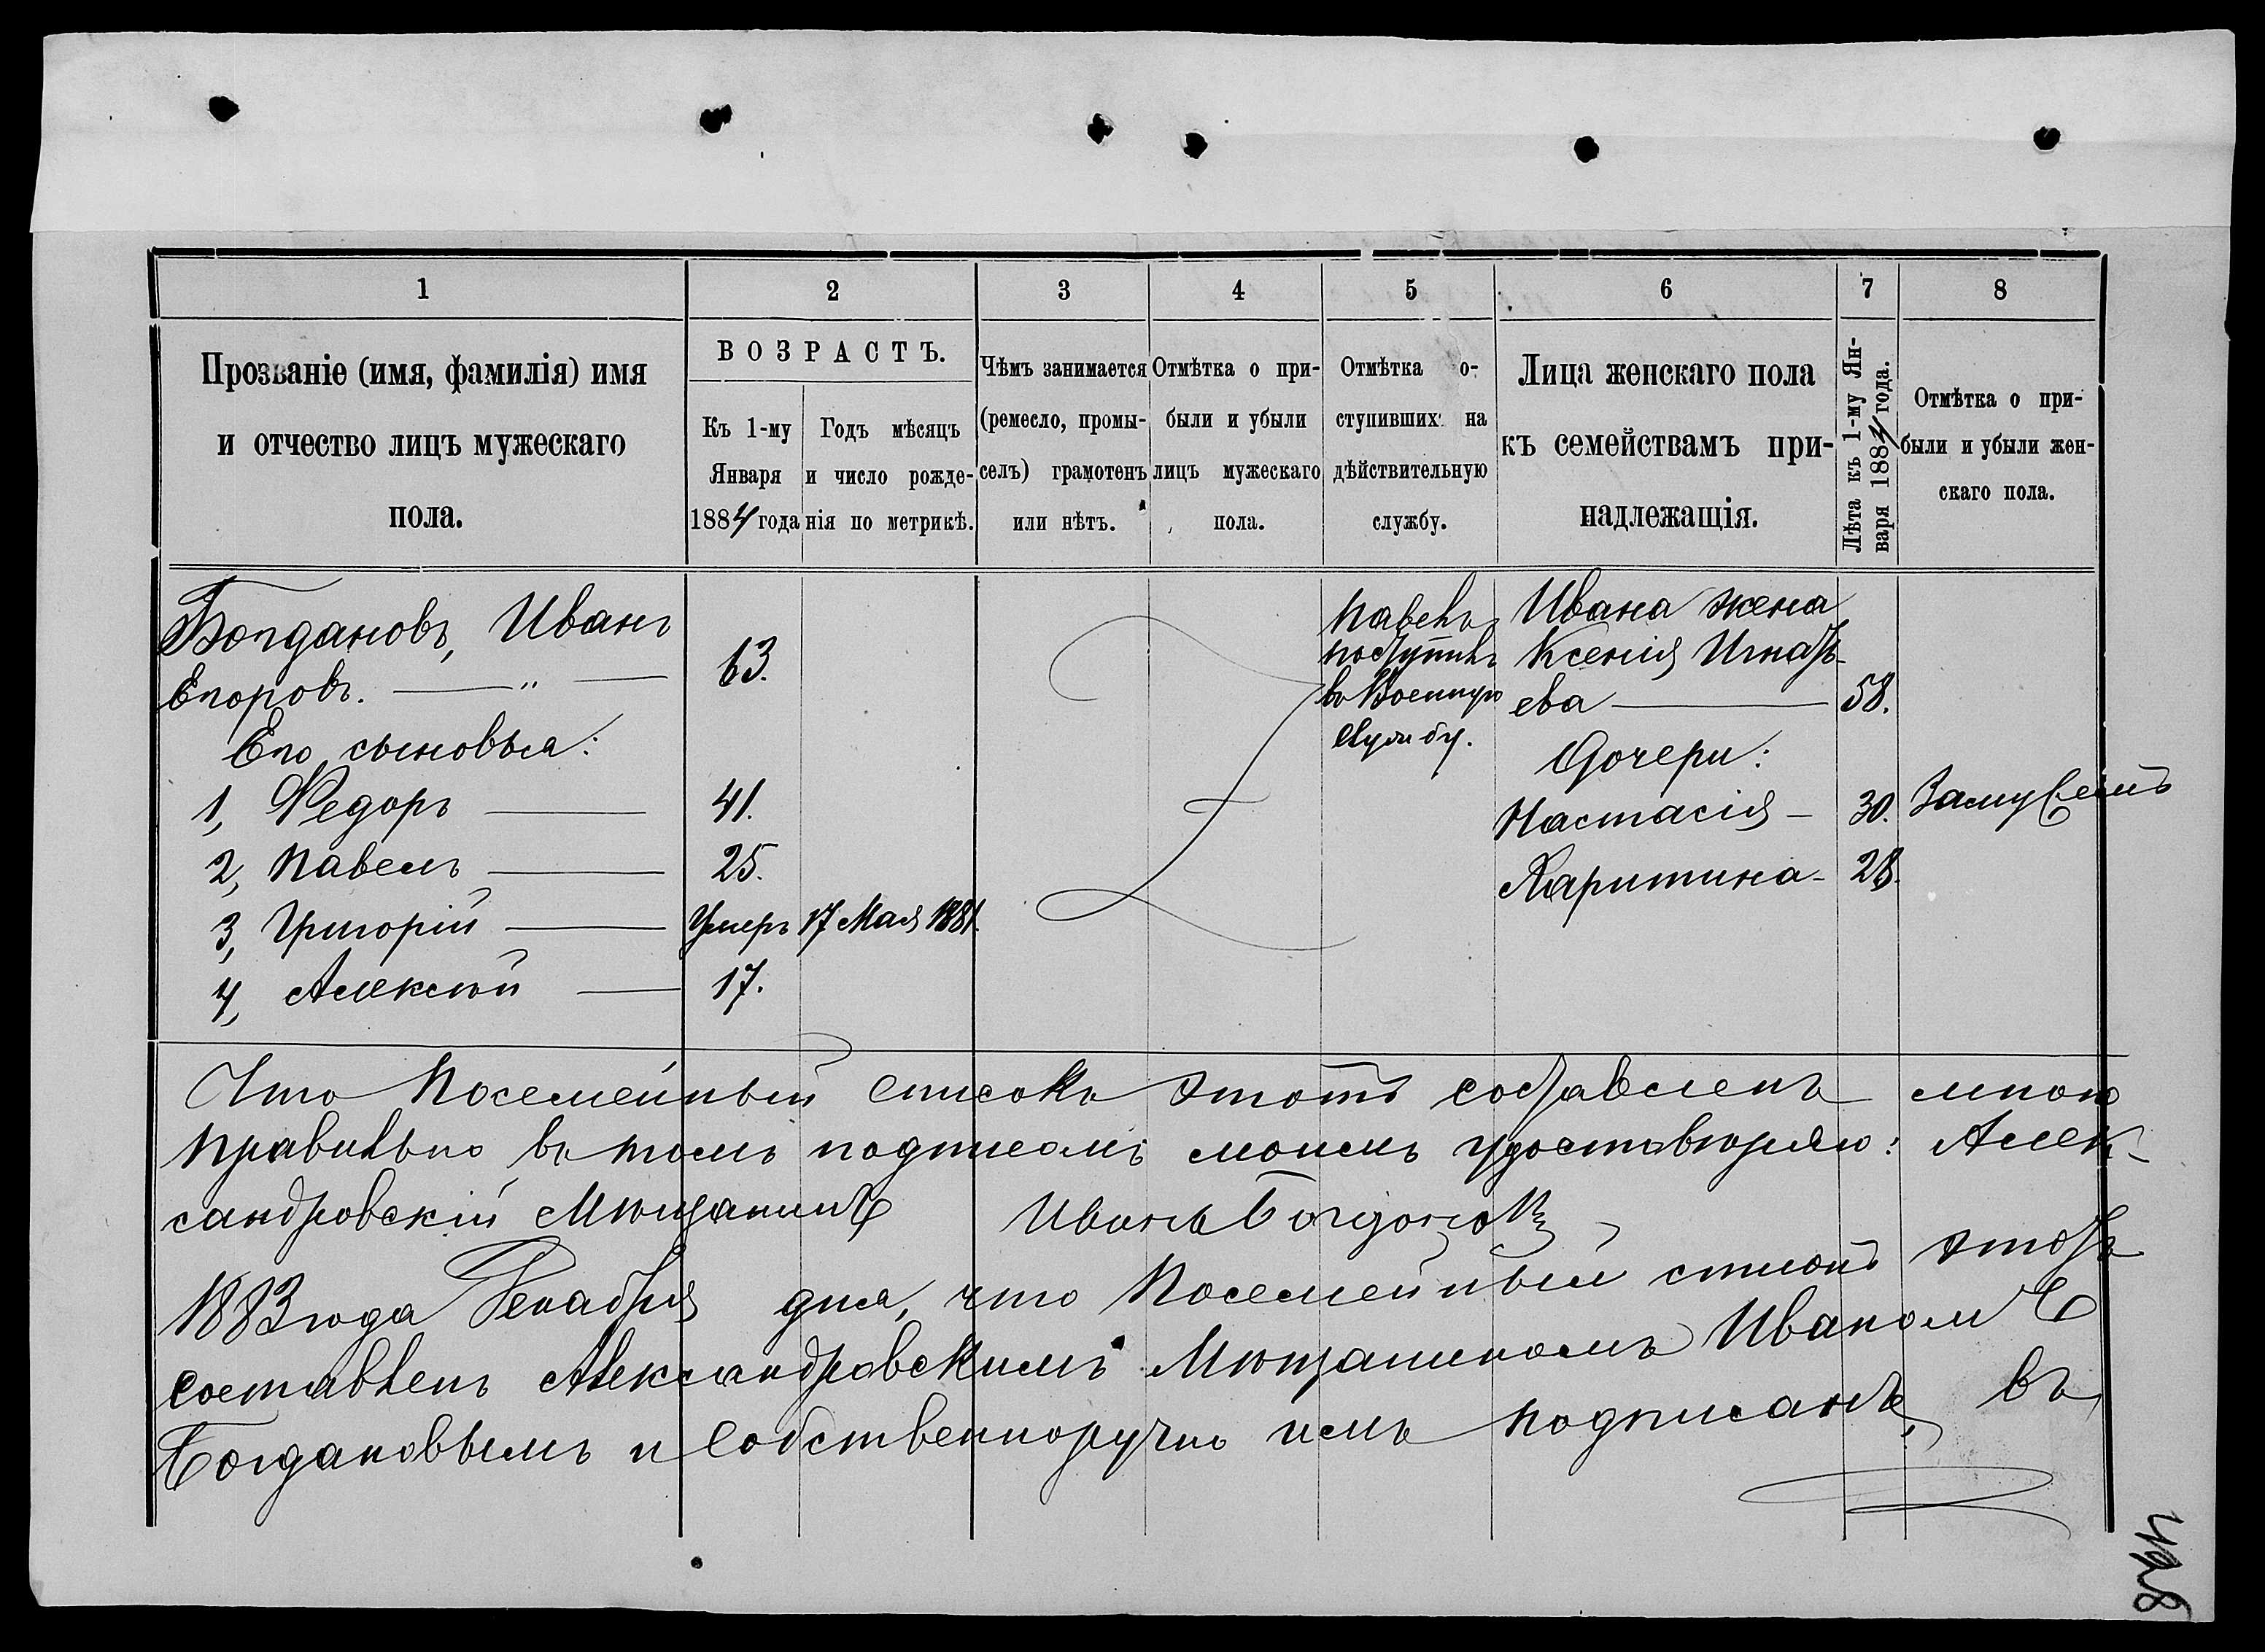 1 2 3 4 5 6 7 8
Прозваніе (имя, фамилія) имя
и отчество лицъ мужескаго
пола.
ВОЗРАСТЪ.
Къ 1-му
Января
1884 года
Годъ мѣсяцъ
и число рожде-
нія по метрикѣ.
Чѣмъ занимается
(ремесло, промы-
селъ) грамотенъ
или нѣтъ.
Отмѣтка о при-
были и убыли
лицъ мужескаго
пола.
Отмѣтка о-
ступившихъ на
дѣйствительную
службу.
Лица женскаго пола
къ семействамъ при-
надлежащія.
Лѣта къ 1-му Ян-
варя 1884 года.
Отмѣтка о при-
были и убыли жен-
скаго пола.
Богдановъ, Иванъ
Егоровъ. — " — 63.
Его сыновья:
1, Федоръ — 41.
2, Павелъ — 25.
3, Григорій — Умеръ 17 Мая 1881.
4, Алексѣй — 17.
Павелъ
поступилъ
въ Военную
службу.
Ивана жена
Ксенія Игнать-
ева — 58.
Дочери:
Настасія — 30. Замужемъ
Харитина — 28.
Что Посемейный списокъ этотъ составленъ мною
правильно въ томъ подписомъ моимъ удостовѣряю: Алек-
сандровскій Мѣщанинъ Иванъ Богдановъ
1883 года Декабря дня, что Посемейный списокъ этотъ
составленъ Александровскимъ Мѣщаниномъ Иваномъ
Богдановымъ и собственноручно имъ подписанъ, въ
428